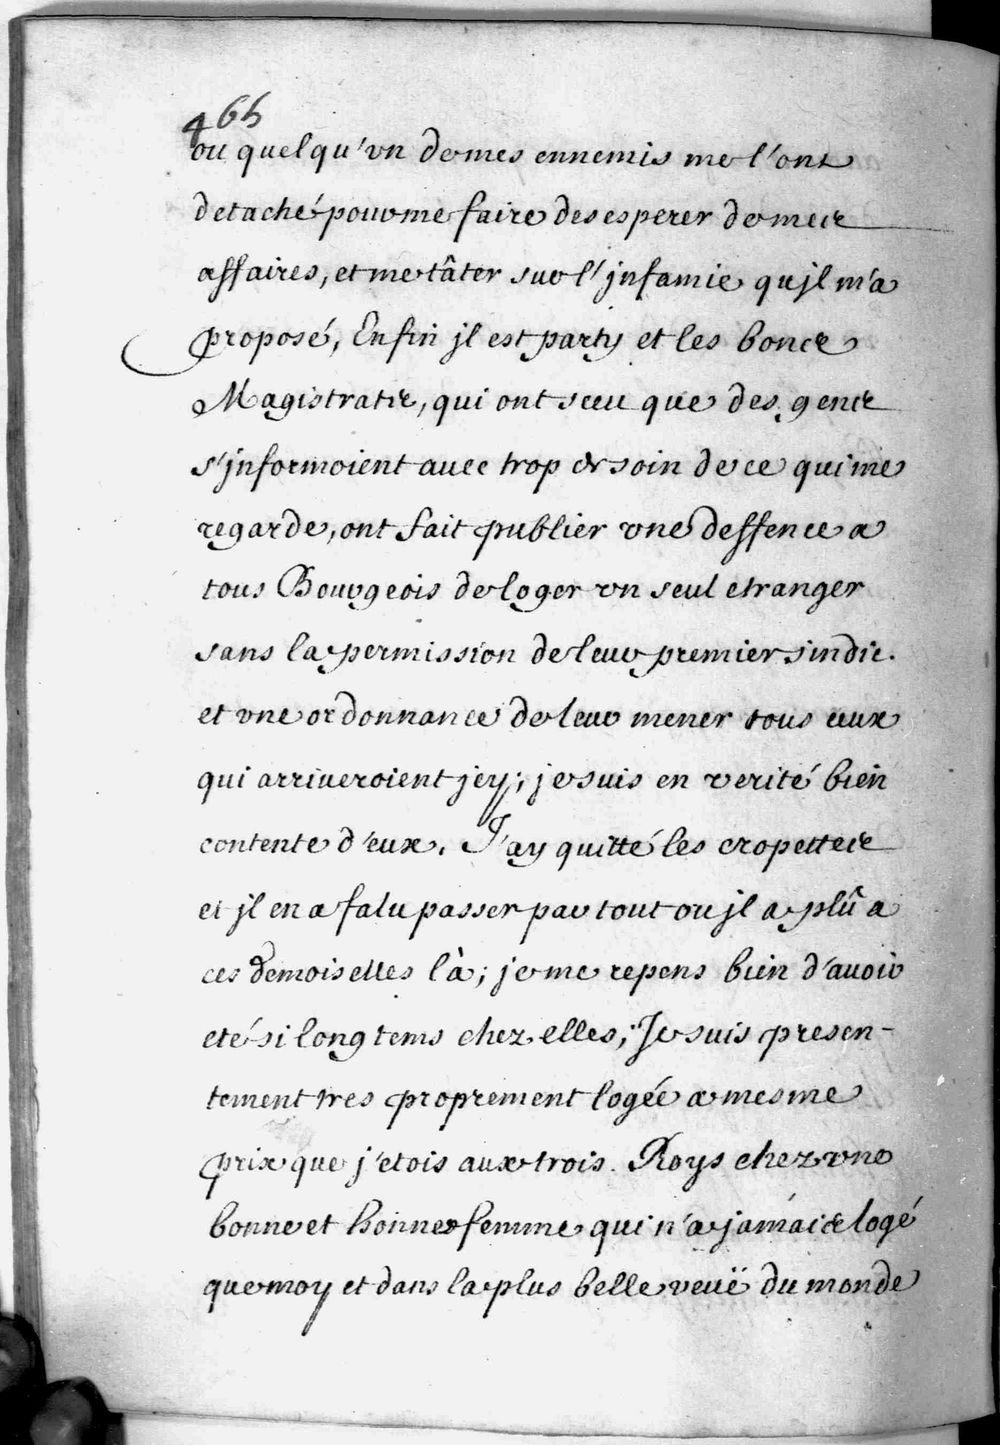 466
ou quelqu'vn de mes ennemis me l'ont
detaché pour me faire desesperer de mes
affaires, et me tâter sur l'jnfamie qu'jl m'a
proposé, Enfin jl est party et les bons
Magistrats, qui ont sceu que des gens
s'jnformoient auec trop de soin de ce qui me
regarde, ont fait publier vne deffence a
tous Bourgeois de loger vn seul etranger
sans la permission de leur premier sindic.
et vne ordonnance de leur mener tous ceux
qui arriueroient jcy; je suis en verité bien
contente d'eux. J'ay quitté les cropettes
et jl en a falu passer par tout ou jl a plû a
ces demoiselles là; je me repens bien d'auoir
eté si long tems chez elles; Je suis presen-
tement tres proprement logée a mesme
prix que j'etois aux trois Roys chez vne
bonne et honneste femme qui n'a jamais logé
que moy et dans la plus belle veuë du monde